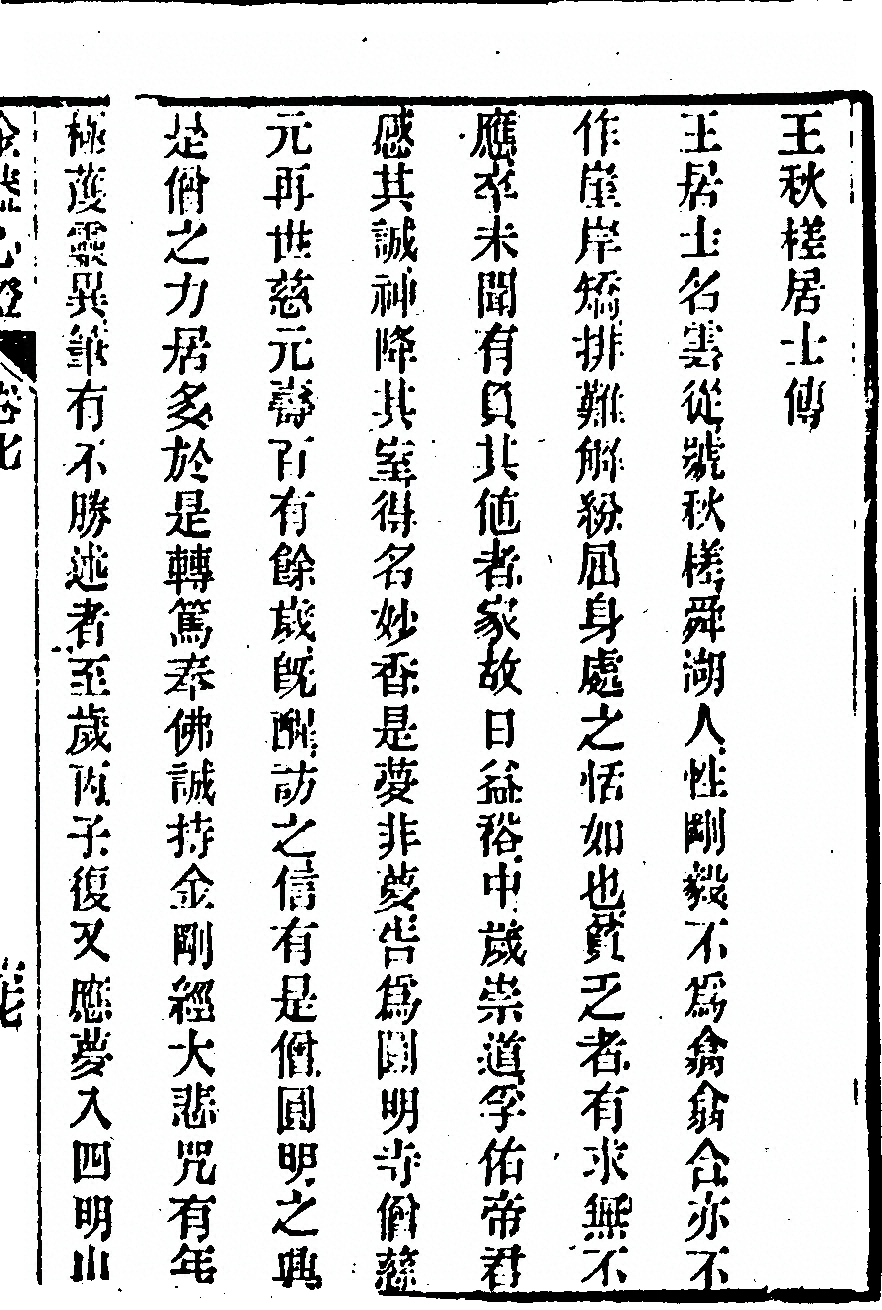 王秋槎居士傳
王居士名雲從號秋槎舜湖人性剛毅不爲翕翕合亦不
作崖岸矯排難解紛屈身處之恬如也貧乏者有求無不
應卒未聞有負其値者家故日益裕中歲崇道孚佑帝君
感其誠神降其室得名妙香是夢非夢告爲圓明寺僧慈
元再世慈元壽百有餘歲旣醒訪之信有是僧圓明之興
是僧之力居多於是轉篤奉佛誠持金剛經大悲咒有年
極護靈異筆有不勝述者至歲丙子復又應夢入四明山
卷七